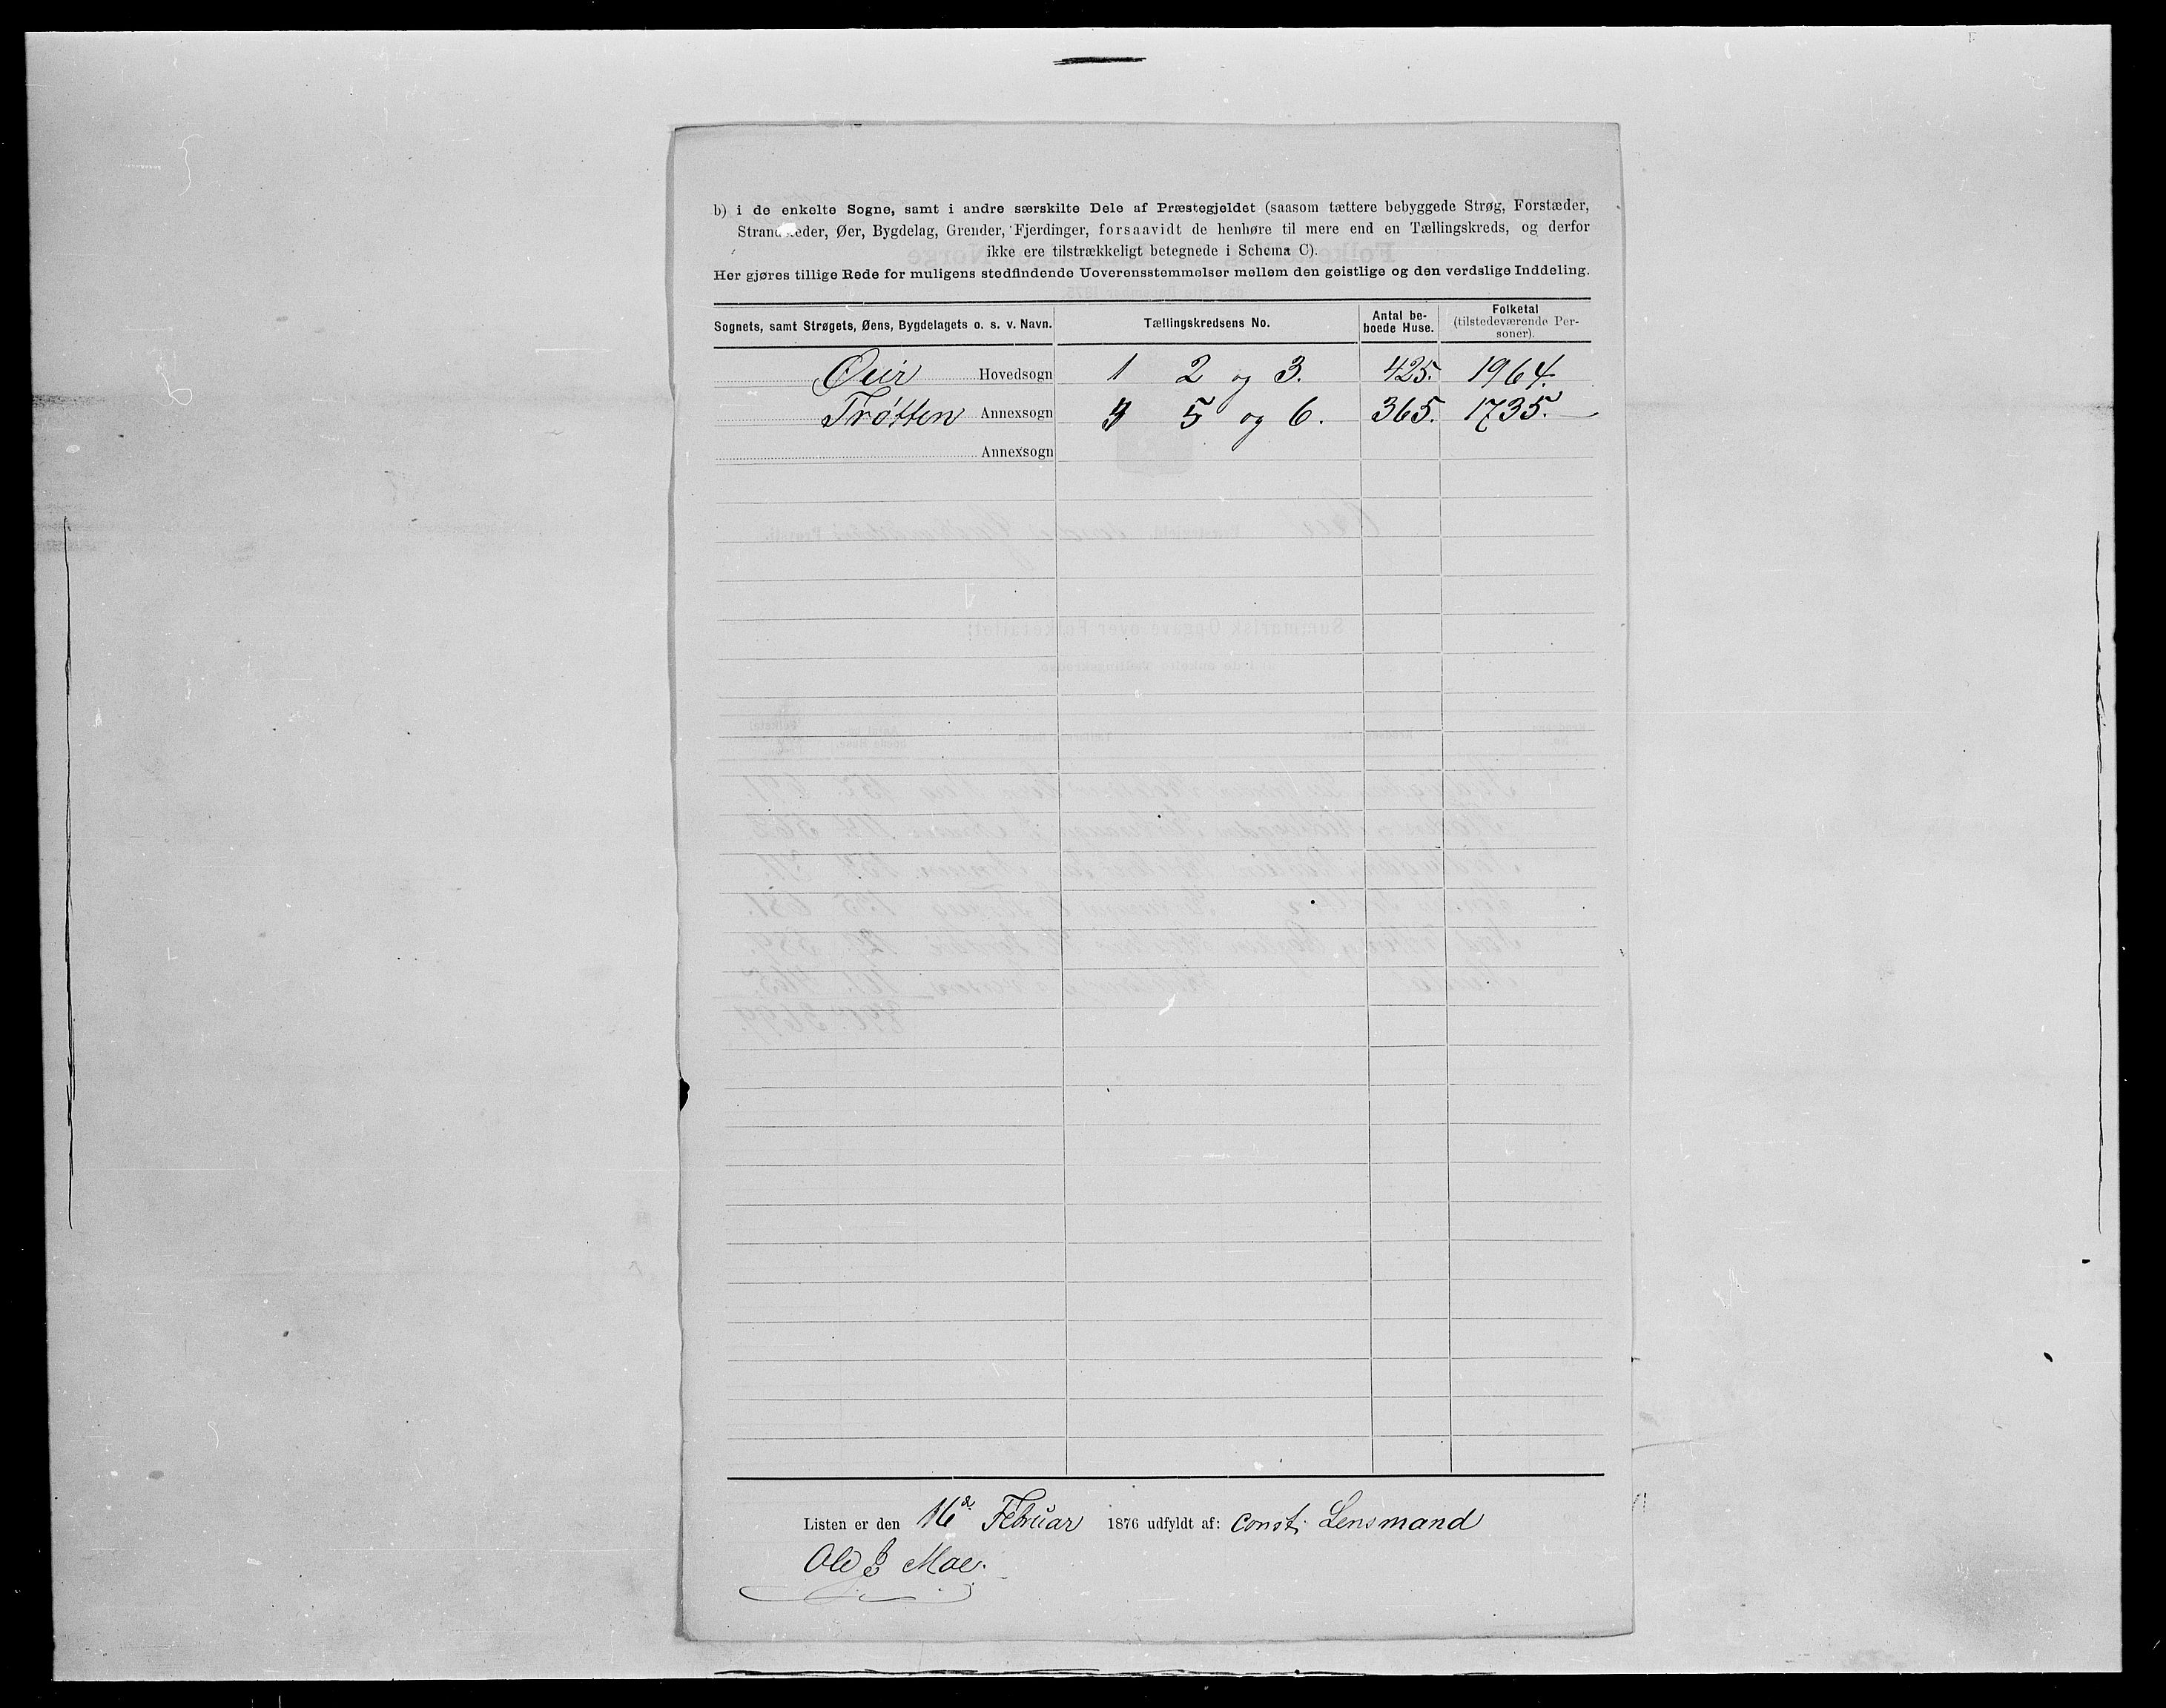 b) i de enkelte Sogne, samt i andre særskilte Dele af Præstegjeldet (saasom tættere bebyggede Strøg, Forstæder,
Øer, Bygdelag, Grender, Fjerdinger, forsaavidt de henhøre til mere end en Tællingskreds, og derfor
ikke ere tilstrækkeligt betegnede i Schema C).
Her gjøres tillige Rede for muligens stedfindende Uoverensstemmelser mellem den geistlige og den verdslige Inddeling.
Sognets, samt Strøgets, Øens, Bygdelagets o. s. v. Navn. Tællingskredsens No. Antal beboede Huse. Folketal (tilstedeværende Personer).
Øeir Hovedsogn 1 2 og 3. 425. 1964.
Trøtten Annexsogn 4 5 og 6. 365. 1735.
Annexsogn
Listen er den 16de Februar 1876 udfyldt af: Const. Lensmand
Ole J Moe.